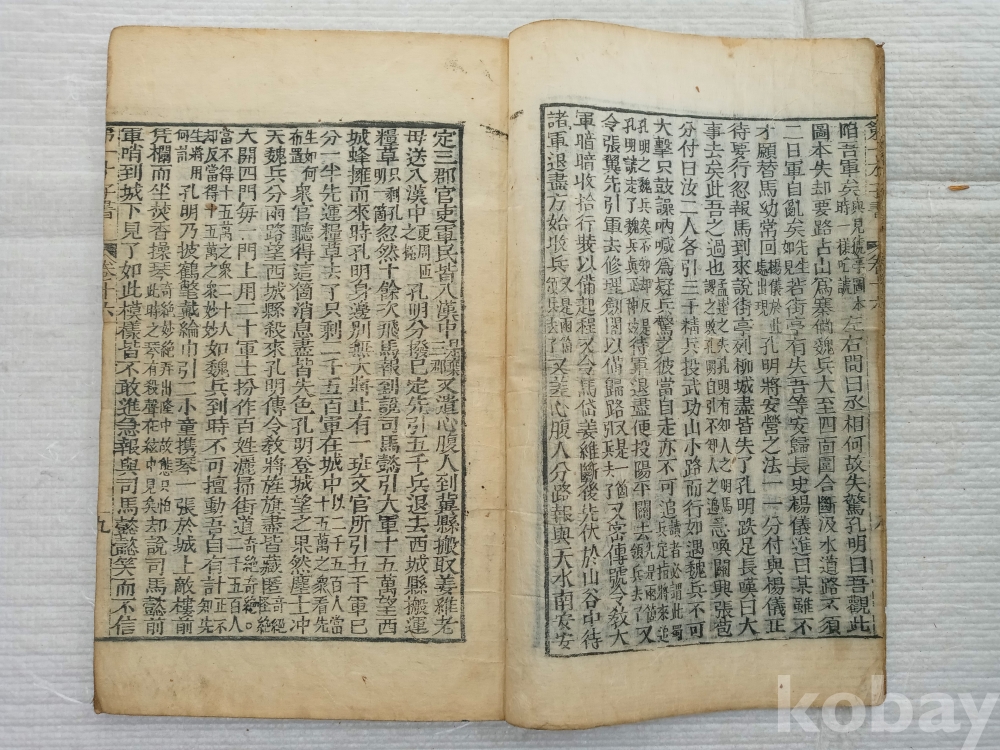 左右問曰丞相何故失驚孔明曰吾觀此
圖本失却要路占山爲寨倘魏兵大至四面圍合斷汲水道路不須
二日軍自亂矣如見先生若街亭有失吾等安歸長史楊儀進曰某雖不
才願替馬幼常回楊儀於此處出現孔明將安營之法一一分付與楊儀正
待要行忽報馬到來說街亭列柳城盡皆失了孔明跌足長嘆曰大
事去矣此吾之過也孟達之失孔明有知人之明馬謖之敗孔明自引不知人之過急喚關興張苞
分付曰汝二人各引三千精兵投武功山小路而行如遇魏兵不可
大擊只鼓譟吶喊爲疑兵驚之彼當自走亦不可追讀者必謂此蜀
待軍退盡便投陽平關去先是兩箇領兵去了又
令張翼先引軍去修理劍閣以備歸路又是一箇引兵去了又密傳號令敎大
軍暗暗收拾行裝以備起程又令馬岱姜維斷後先伏於山谷中待
諸軍退盡方始收兵又是兩箇領兵去了又差心腹人分路報與天水南安安
定三郡官吏軍民皆入漢中又遣心腹人到冀縣搬取姜維老
母送入漢中更周匝之極孔明分撥已定先引五千兵退去西城縣搬運
糧草忽然十餘次飛馬報到說司馬懿引大軍十五萬望西
城蜂擁而來時孔明身邊別無大將止有一班文官所引五千軍已
分一半先運糧草去了只剩二千五百軍在城中以二千五百人當十五萬之衆看先生如何布置衆官聽得這箇消息盡皆失色孔明登城望之果然塵土冲
天魏兵分兩路望西城縣殺來孔明傳令敎將旌旗盡皆藏匿奇絕怪絕
大開四門每一門上用二十軍士扮作百姓灑掃街道奇絕奇絕
如魏兵到時不可擅動吾自有計
孔明乃披鶴氅戴綸巾引二小童攜琴一張於城上敵樓前
凭欄而坐焚香操琴却說司馬懿前
軍哨到城下見了如此模樣皆不敢進急報與司馬懿懿笑而不信
卷十六
九
kobay